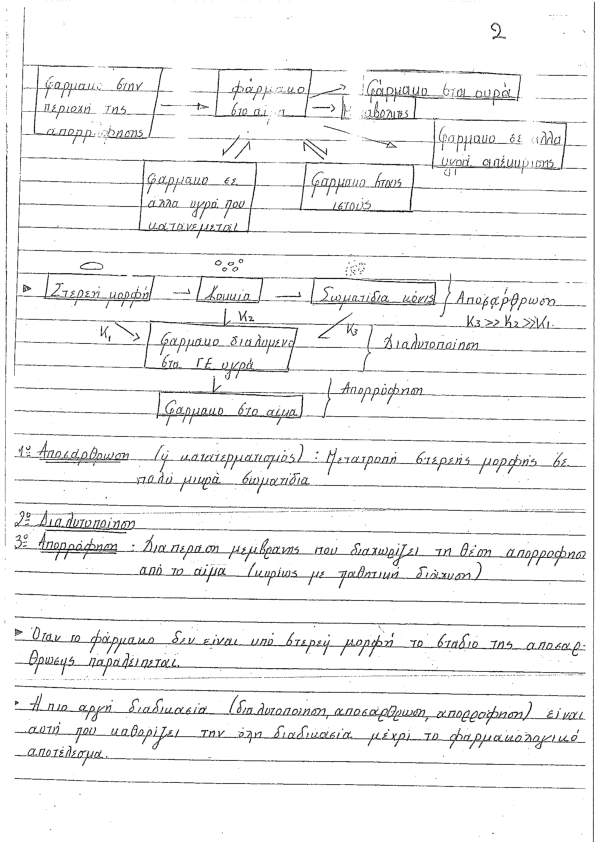 2
φάρμακο στην
περιοχή της
απορρόφησης
φάρμακο
στο αίμα
φάρμακο στα ούρα
Μεταβολίτες
φάρμακο σε άλλα
υγρά απέκκρισης
φάρμακο σε
άλλα υγρά που
κατανέμεται
φάρμακο στους
ιστούς
Στερεή μορφή
Κοκκία
Σωματίδια κόνις
Αποσάρθρωση
K3 >> K2 >> K1.
K1
K2
K3
φάρμακο διαλυμένο
στα ΓΕ υγρά
Διαλυτοποίηση
φάρμακο στο αίμα
Απορρόφηση
1ο Αποσάρθρωση (ή κατατερματισμός) : Μετατροπή στερεής μορφής σε
πολύ μικρά σωματίδια
2ο Διαλυτοποίηση
3ο Απορρόφηση : Διαπέραση μεμβράνης που διαχωρίζει τη θέση απορρόφησ
από το αίμα (κυρίως με παθητική διάχυση)
Όταν το φάρμακο δεν είναι υπό στερεή μορφή το στάδιο της αποσάρ-
θρωσης παραλείπεται.
Η πιο αργή διαδικασία (διαλυτοποίηση, αποσάρθρωση, απορρόφηση) είναι
αυτή που καθορίζει την όλη διαδικασία μέχρι το φαρμακολογικό
αποτέλεσμα.